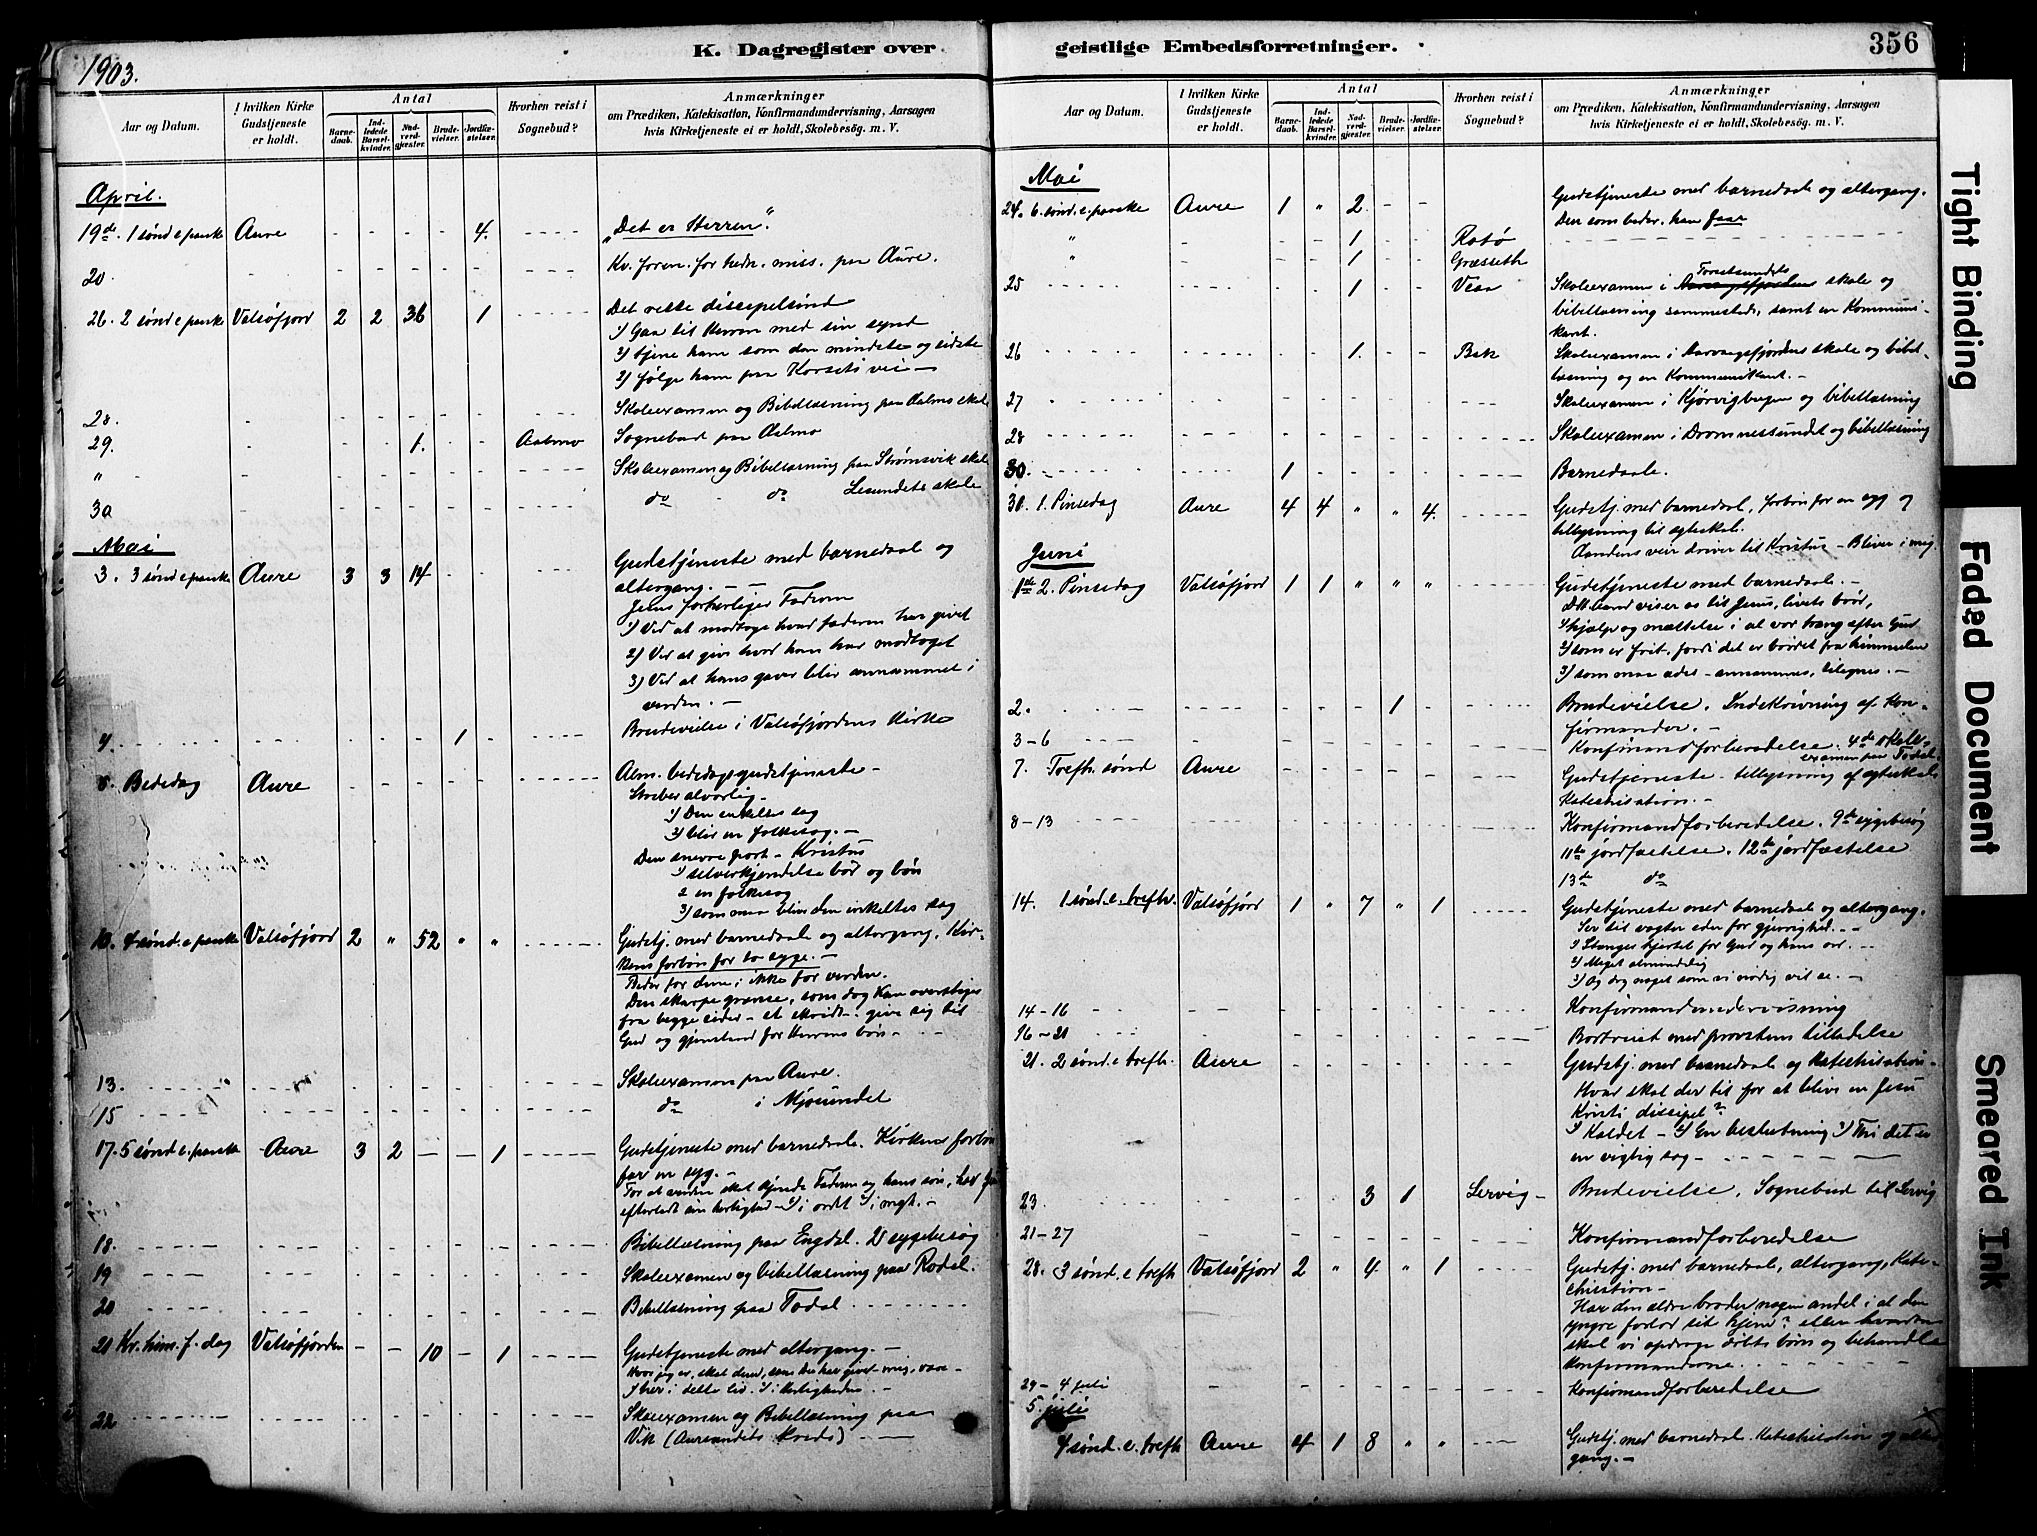 K. Dagregister over geistlige Embedsforretninger.
356
1903.
Aar og Datum.
I hvilken Kirke Gudstjeneste er holdt.
Antal
Barnedaab.
Indledede Barselkvinder.
Nadverdgjæster.
Brudevielser.
Jordfæstelser.
Hvorhen reist i Sognebud?
Anmærkninger
om Prædiken, Katekisation, Konfirmandundervisning, Aarsagen
hvis Kirketjeneste ei er holdt, Skolebesög. m. V.
April.
19de. 1 sønd e paaske Aure - - - - 4. - - - "Det er Herren".
20. - - - - - - Kv. foren. for hedn. miss. paa Aure.
26. 2 sønd e paaske Valsøfjord 2 2 36 1 - - - Det rette discipelsind
1) Gaa til Herren med sin synd
2) tjene ham som den mindste og sidste
3) følge ham paa Korsets vei -
28. - - - - - - Skoleexamen og Bibellæsning paa Aalmo skole
29. - - - 1. - - Aalmo Sognebud paa Aalmo
" - - - - - - Skoleexamen og Bibellæsning paa Strømsvik skole
30 - - - - - - do do Lesundets skole
Mai
3. 3 sønd e paaske Aure 3 3 14 - - - - Gudstjeneste med barnedaab og
altergang. - -
Jesus forherliger Faderen
1) Ved at modtage hvad faderen har givet
2) Ved at give hvad han har modtaget
3) Ved at hans gaver blir annammet i
verden. -
4. - - - - - 1 - - - Brudevielse i Valsøfjordens Kirke
8. Bededag Aure - - - - - - Alm. bededagsgudstjeneste -
Stræber alvorlig -
1) Den enkeltes sag
2) blir en folkesag. -
Den snevre port - Kristus
1) selverkjendelse bod og bøn
2 en folkesag
3) som maa blive den enkeltes sag
10. 4 sønd. e paaske Valsøfjord 2 " 52 " " - - - Gudstj. med barnedaab og altergang. Kir-
kens forbøn for to syge. -
Beder for dem; ikke for verden.
Den skarpe grænse, som dog kan overstiges
fra begge sider - et skridt - give sig til
Gud og gjenstand for Herrens bøn -
13. - - - - - - Skoleexamen paa Aure.
15 - - - - - - do i Mjosundet
17. 5 sønd e. paaske Aure 3 2 - - 1 - - - Gudstjeneste med barnedaab. Kirkens forbøn
for en syg. -
For at verden skal kjende Faderen og hans søn, har
efterladt sin herlighed - 1) i ordet 2) i
18. - - - - - - Bibellæsning paa Engdal. 2 sygebesøg
19 - - - - - - Skoleexamen og bibellæsning paa Rodal.
20 - - - - - - Bibellæsning paa Todal
21 Kr. him. f. dag Valsøfjorden - - 10 - 1 - - - Gudstjeneste med altergang. -
Hvor jeg er, skal dem, som du har givet mig, være -
1) her i dette liv. 2) i herligheden. -
22 - - - - - - Skoleexamen og Bibellæsning paa
Vik (Aursundets kreds) -
Aar og Datum.
I hvilken Kirke Gudstjeneste er holdt.
Antal
Barnedaab.
Indledede Barselkvinder.
Nadverdgjæster.
Brudevielser.
Jordfæstelser.
Hvorhen reist i Sognebud?
Anmærkninger
om Prædiken, Katekisation, Konfirmandundervisning, Aarsagen
hvis Kirketjeneste ei er holdt, Skolebesög. m. V.
Mai
24. 6. sønd. e. paaske Aure 1 " 2 - - Gudstjeneste med barnedaab og altergang.
Den som beder, han faar
" - - - 1. - - Rotø
" - - - 1 - - Græsseth
25 - - - 1 - - Skoleexamen i skole og
bibellæsning sammesteds, samt en Kommuni-
kant.
26 - - - 1. - - Bak Skoleexamen i Aarvaagsfjordens skole og bibel-
læsning og en Kommunikant. -
27 - - - - - - Skoleexamen i Kjørvigbugen og bibellæsning
28 - - - - - - Skoleexamen i Dromnessundet og bibellæsning
30. - - 1 - - - - Barnedaab.
30. 1. Pinsedag Aure 4 4 " " 4. - - - Gudstj. med barnedaab, forbøn for en syg og
tillysning til egteskab.
Aandens veir driver til Kristus - Bliver i mig.
Juni
1ste 2. Pinsedag Valsøfjord 1 1 " " " - - - Gudstjeneste med barnedaab. -
viser os til Jesus, livets brød,
1) hjælp og mættelse i al vor trang efter Gud
2) som er frit, fordi det er brødet fra himmelen
3) som maa ædes - annammes, tilegnes. -
2. - - - - 1 - - - Brudevielse. Indskrivning af Kon-
firmander. -
3-6 - - - - - Konfirmandforberedelse. 4de skole-
examen paa Todal.
7. Trefh. sønd Aure - - - - - Gudstjeneste - tillysning af egteskab
Katechisation. -
8-13 - - - - - Konfirmandforberedelse. 9de sygebesøg
11te jordfæstelse. 12te jordfæstelse
13de do
14. 1 sønd. e. trefh. Valsøfjord 1 " 7 " 1 - - - Gudstjeneste med barnedaab og altergang.
Ser til vogter eder for gjerrighed. - -
1) Stænger hjertet for Gud og hans ord. - -
2) Meget almindelig
3) Og dog noget som vi nødig vil se. -
14-16 - - - - - Konfirmandundervisning
16-21 - - - - - Bortreist med provstens tilladelse
21. 2 sønd. e trefh. Aure - - - - - Gudstj. med barnedaab og Katechisation -
Hvad skal der til for at blive en Jesu
Kristi discipel?
1) Kaldet - 2) En beslutning 3) Thi det er
en vigtig sag -
23 - - - 3 1 Lervig - Brudevielse. Sognebud til Lervig
21-27 - - - - - Konfirmandforberedelse
28. 3 sønd. e trefh Valsøfjord 2 " 4. " 1 - - - Gudstj. med barnedaab, altergang, Kate-
chisation -
Har den ældre broder nogen andel i at den
yngre forlod sit hjem? eller hvordan
skal vi opdrage døbte børn og behandle
Konfirmanderne.
29 - 4 juli - - - - - Konfirmandforberedelse
5. juli
4 sønd. e. trefh Aure 4 1 8 " " - - - Gudstj. med barnedaab. Katechisation og alter-
gang. -
Tight Binding
Faded Document
Smeared Ink